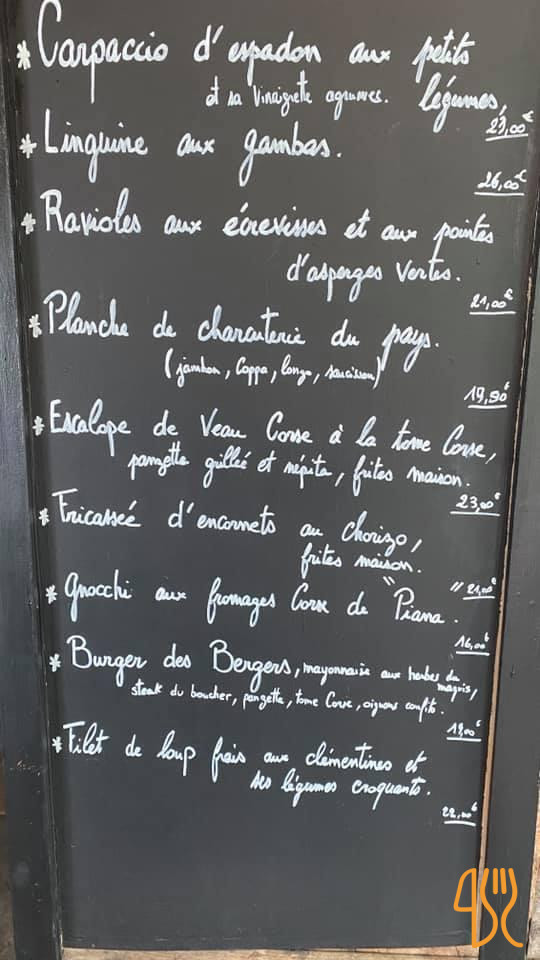 * Carpaccio d'espadon aux petits
légumes,
et sa vinaigrette agrumes.
23,00€
* Linguine aux gambas.
26,00€
* Ravioles aux écrevisses et aux pointes
d'asperges vertes.
21,00€
* Planche de charcuterie du pays.
(jambon, Coppa, lonzo, saucisson)
19,90€
* Escalope de Veau Corse à la tome Corse,
panzette grillée et népita, frites maison.
23,00€
* Fricassée d'encornets au chorizo,
frites maison.
21,00€
* Gnocchi aux fromages Corse de "Piana".
16,00€
* Burger des Bergers, mayonnaise aux herbes du
maquis,
steak du boucher, panzette, tome Corse, oignons confits.
19,00€
* Filet de loup frais aux clémentines et
ses légumes croquants.
22,00€